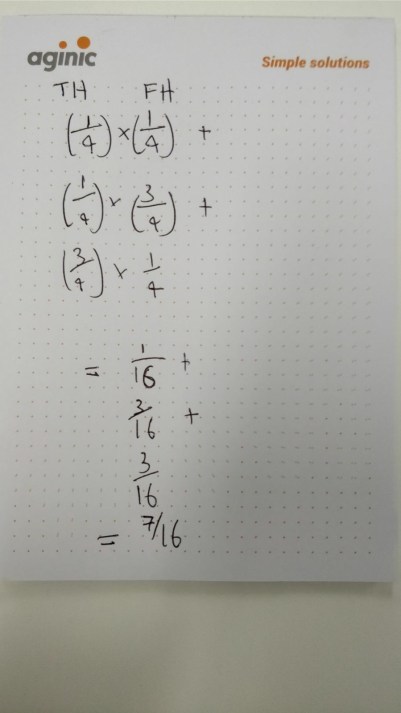 aginic
Simple solutions
TH FH
(1/4) × (1/4) +
(1/4) × (3/4) +
(3/4) × 1/4
= 1/16 +
3/16 +
3/16
= 7/16